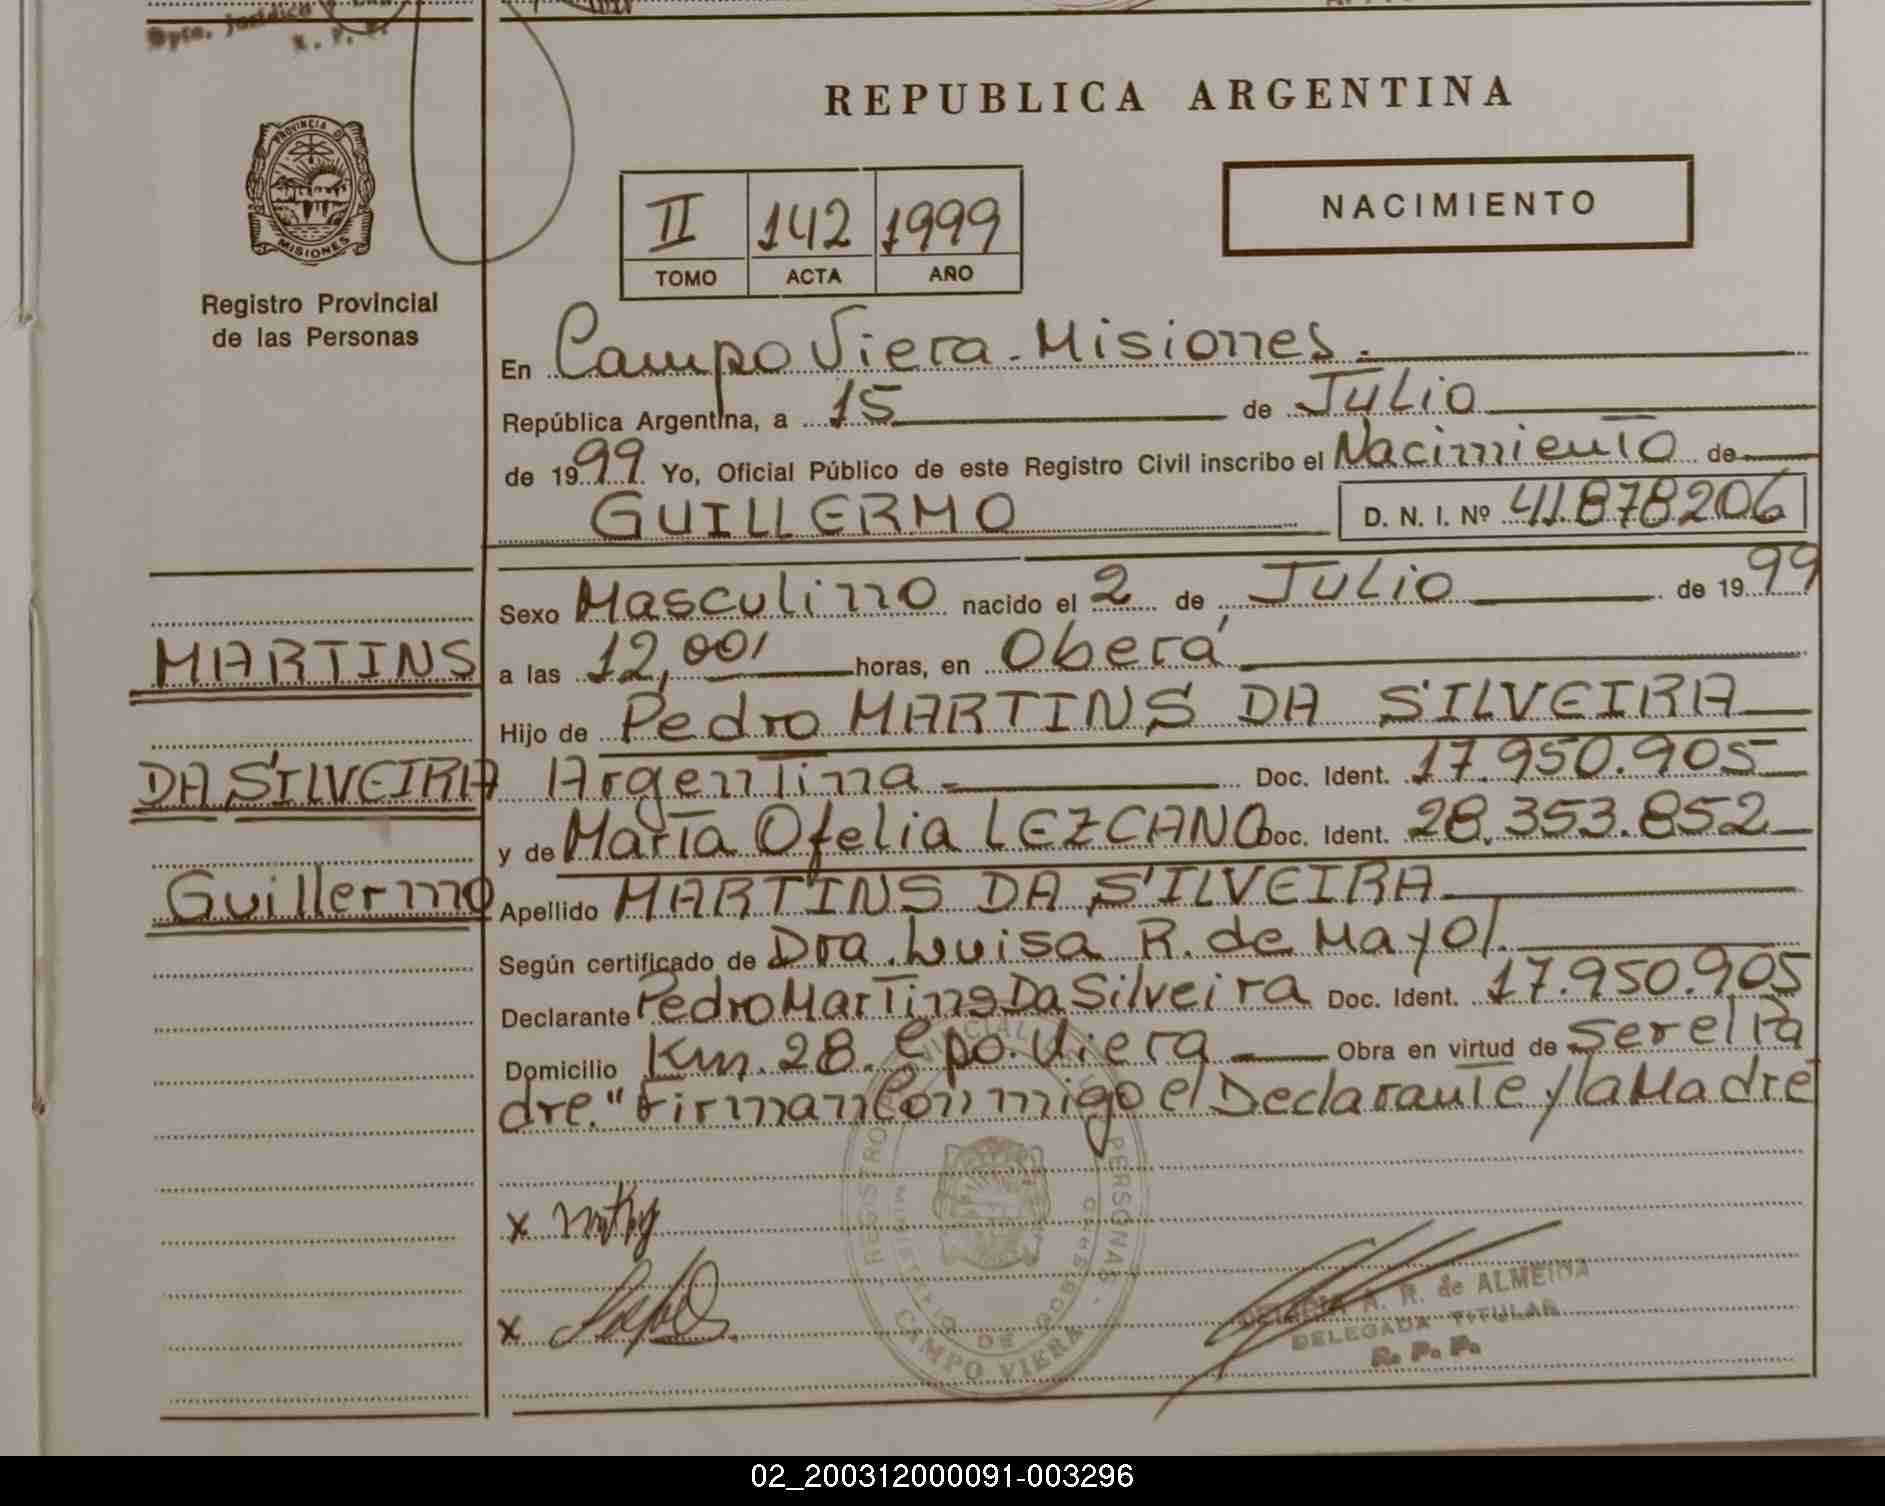 Dpto. Jurídico
R. P. P.
REPUBLICA ARGENTINA
PROVINCIA DE
MISIONES
Registro Provincial
de las Personas
II 142 1999
TOMO ACTA AÑO
NACIMIENTO
En Campo Viera - Misiones.
República Argentina, a 15 de Julio
de 1999 Yo, Oficial Público de este Registro Civil inscribo el Nacimiento de
GUILLERMO D. N. I. Nº 41.878206
Sexo Masculino nacido el 2 de Julio de 1999
a las 12,00 horas, en Oberá
Hijo de Pedro MARTINS DA SILVEIRA
Argentina Doc. Ident. 17.950.905
y de María Ofelia LEZCANO Doc. Ident. 28.353.852
Apellido MARTINS DA SILVEIRA
Según certificado de Dra. Luisa R. de Mayol.
Declarante Pedro Martins Da Silveira Doc. Ident. 17.950.905
Domicilio Km. 28. Cpo. Viera Obra en virtud de ser el Pa
dre." Firman Conmigo el Declarante y la Madre
MARTINS
DA SILVEIRA
Guillermo
x
x
REGISTRO PROVINCIAL PERSONAS
MINISTERIO DE GOBIERNO
CAMPO VIERA
A. R. de ALMEIDA
DELEGADA TITULAR
R. P. P.
02_200312000091-003296